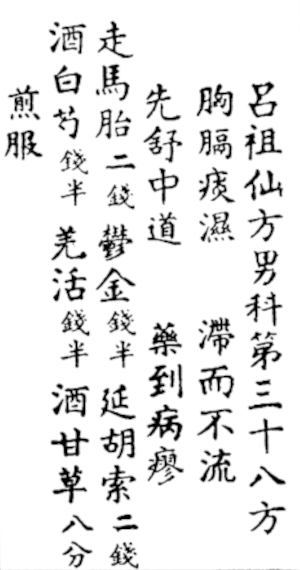 呂祖仙方男科第三十八方
胸膈痰濕 滯而不流
先舒中道 藥到病瘳
走馬胎二錢 鬱金錢半 延胡索二錢
酒白芍錢半 羌活錢半 酒甘草八分
煎服